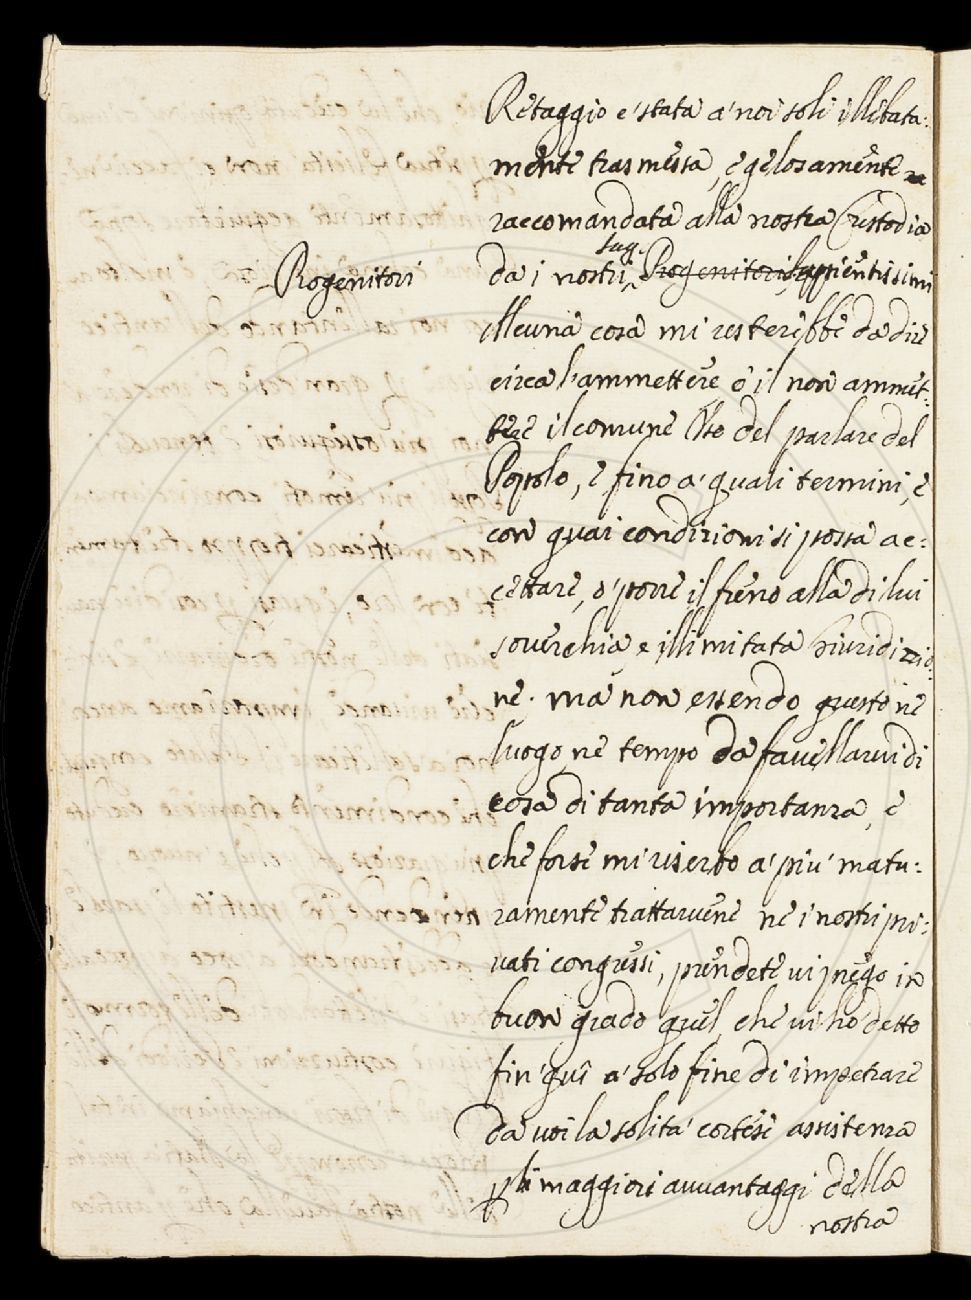 Retaggio e' stata a' noi soli illibata:
mente trasmessa, e gelosamente
raccomandata alla nostra Custodia
da i nostri Sag. Progenitori Sapientissimi
Progenitori
Alcuna cosa mi resterebbe da dire
circa l'ammettere o' il non ammet:
tere il comune Uso del parlare del
Popolo, e fino a' quali termini, e
con quai condizioni si possa ac:
cettare, o' porre il freno alla di lui
soverchia, e illimitata Giuridizio:
ne. ma non essendo questo ne
luogo ne tempo da favellarvi di
cosa di tanta importanza, e
che forse mi riserbo a' piu' matu:
ramente trattarvene ne i nostri pri:
vati congressi, prendete vi prego in
buon grado quel, che vi ho' detto
fin' quì a' solo fine di impetrare
da voi la solita cortese assistenza
p li maggiori avvantaggi della
nostra